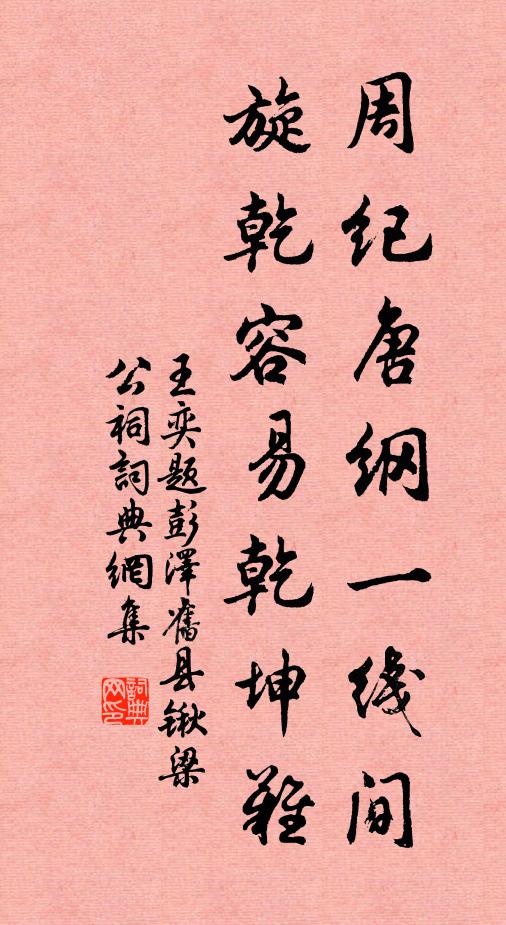 周纪唐纲一线间
旋乾容易乾坤难
王奕题彭泽旧县锹梁
公祠词典网集
詞典网印